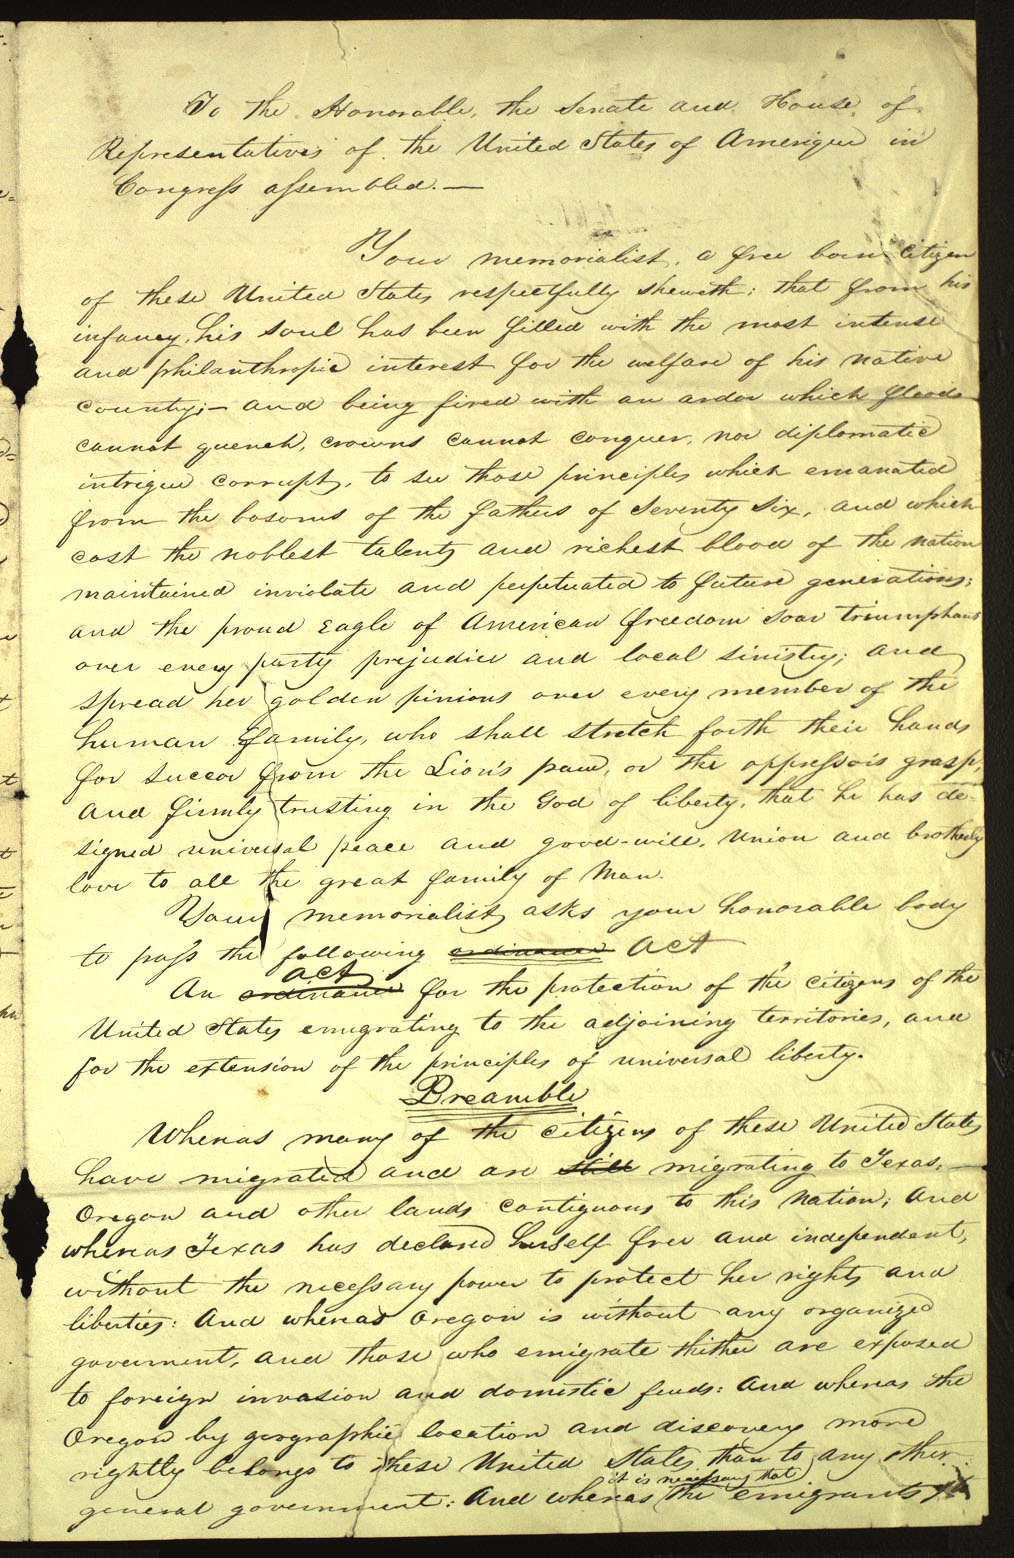 To the Honorable, the Senate and House of
Representatives of the United States of Amerique in
Congress assembled. —
Your memorialist, a free born citizen
of these United States respectfully sheweth: that from his
infancy, his soul has been filled with the most intense
and philanthropic interest for the welfare of his native
county; — and being fired with an ardor which floods
cannot quench, crowns cannot conquer, nor diplomatic
intrigue corrupt, to see those principles which emanated
from the bosoms of the fathers of Seventy Six, and which
cost the noblest talents and richest blood of the nation
maintained inviolate and perpetuated to future generations;
and the proud Eagle of American freedom soar triumphant
over every party prejudice and local sinistry; and
spread her golden pinions over every member of the
human family, who shall stretch forth their hands
for succor from the Lion's paw, or the oppressor's grasp;
and firmly trusting in the God of liberty, that he has de-
signed universal peace and good-will, union and brotherly
love to all the great family of Man.
Your memorialist asks your honorable body
to pass the following ordinance act
act
An ordinance for the protection of the citizens of the
United States emigrating to the adjoining territories, and
for the extension of the principles of universal liberty.
Preamble
Whereas many of the citizens of these United States
have migrated and are still migrating to Texas, —
Oregon and other lands contiguous to this nation; and
whereas Texas has declared herself free and independent,
without the necessary power to protect her rights and
liberties: And whereas Oregon is without any organized
government, and those who emigrate thither are exposed
to foreign invasion and domestic feuds: And whereas the
Oregon by geographic location and discovery more
rightly belongs to these United States than to any other
it is necessary that
general government: And whereas the emigrants